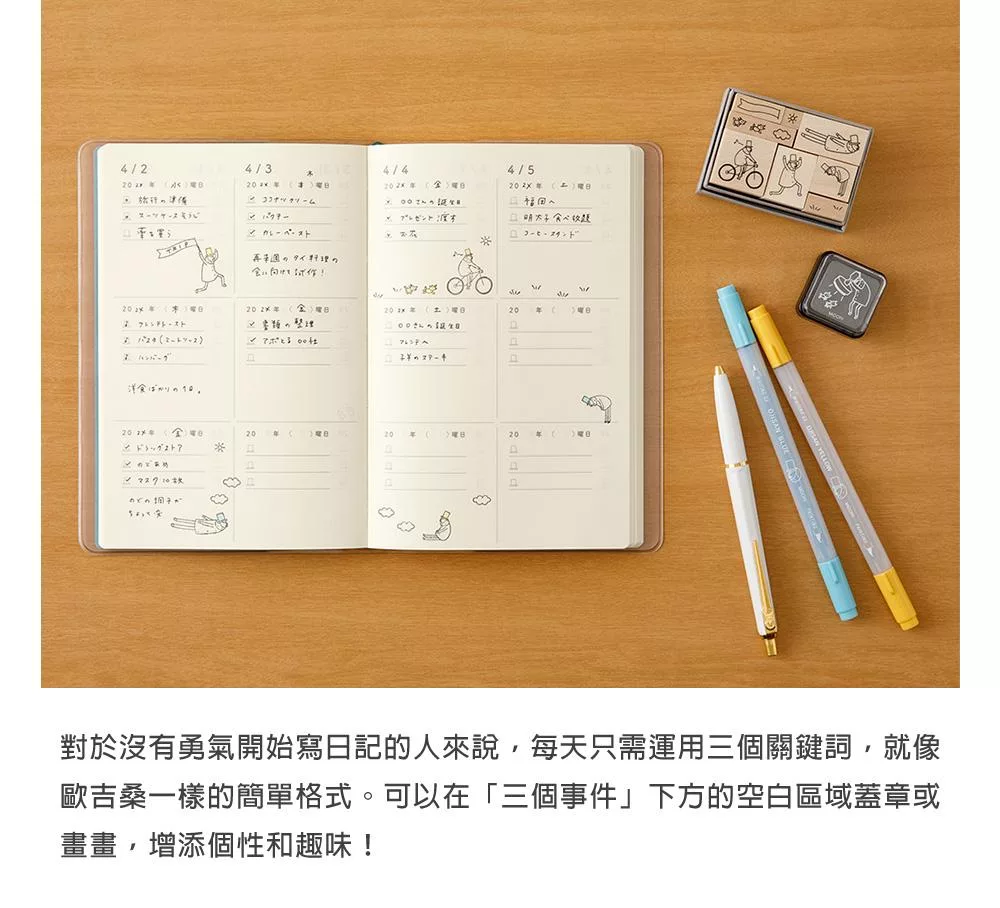 4/2
20 2X 年 (水) 曜日
旅行の準備
スーツケースをうじ
薬を買う
TRIP
20 2X 年 (木) 曜日
フレンチトースト
パスタ(ミートソース)
ハンバーグ
洋食ばかりの1日。
20 2X 年 (金) 曜日
ドラッグストア
のどあめ
マスク10枚
のどの調子が
ちょっと変
4/3
20 2X 年 (木) 曜日
ココナツクリーム
パクチー
カレーペースト
再来週のタイ料理の
会に向けて試作!
20 2X 年 (金) 曜日
書類の整理
アポとる 〇〇社
20 年 ( ) 曜日
4/4
20 2X 年 (金) 曜日
〇〇さんの誕生日
プレゼント渡す
お花
20 2X 年 (土) 曜日
〇〇さんの誕生日
フレンチへ
20 年 ( ) 曜日
4/5
20 2X 年 (土) 曜日
福岡へ
明太子食べ放題
コーヒースタンド
20 年 ( ) 曜日
20 年 ( ) 曜日
OJISAN BLUE
OJISAN YELLOW
對於沒有勇氣開始寫日記的人來說,每天只需運用三個關鍵詞,就像
歐吉桑一樣的簡單格式。可以在「三個事件」下方的空白區域蓋章或
畫畫,增添個性和趣味!